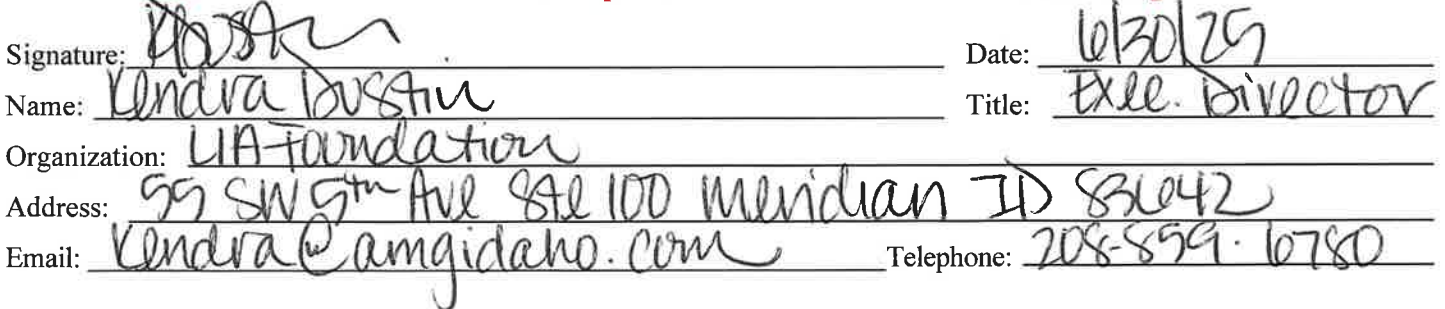 Signature: Date: 6/30/25
Name: Kendra Dustin Title: Exec. Director
Organization: LIA Foundation
Address: 55 SW 5th Ave Ste 100 Meridian ID 83642
Email: Kendra@amgidaho.com Telephone: 208-859.6780